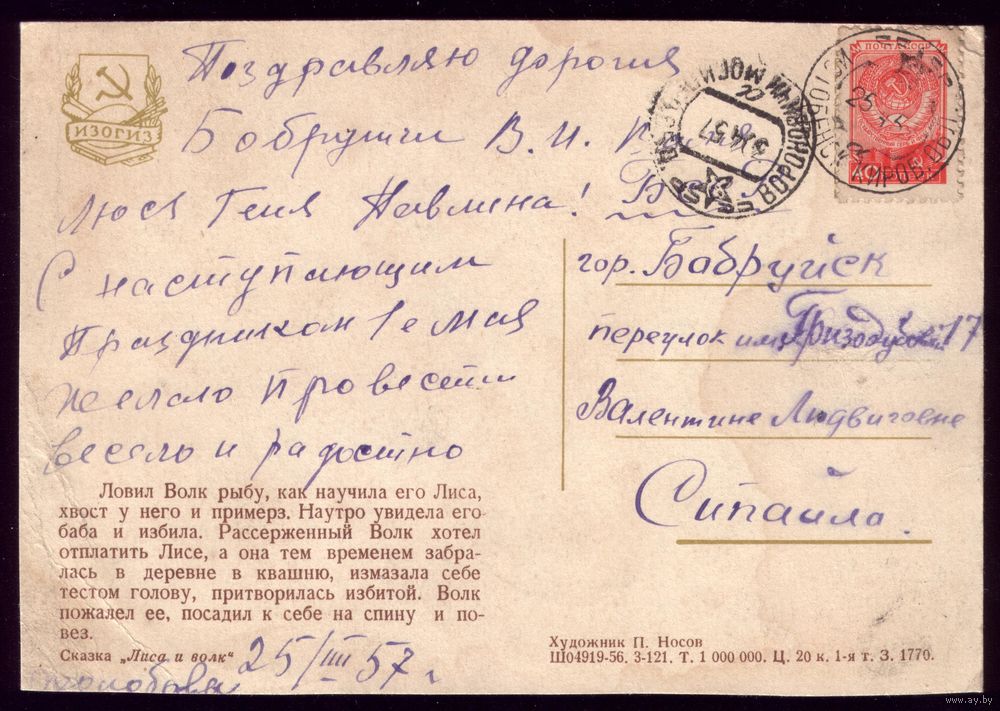 ИЗОГИЗ
Поздравляю дорогия
Бобруйчи В. И.
Люся Геня Павлина!
С наступающим
Праздником 1е мая
Желаю провести
весело и радостно
Ловил Волк рыбу, как научила его Лиса,
хвост у него и примерз. Наутро увидела его
баба и избила. Рассерженный Волк хотел
отплатить Лисе, а она тем временем забра-
лась в деревне в квашню, измазала себе
тестом голову, притворилась избитой. Волк
пожалел ее, посадил к себе на спину и по-
вез.
Сказка „Лиса и волк“
25/III 57 г
ПОЧТА СССР
гор. Бабруйск
переулок им. Гризодубовой 17
Валентине Людвиговне
Сипайла.
Художник П. Носов
Ш04919-56. З-121. Т. 1 000 000. Ц. 20 к. 1-я т. З. 1770.
www.ay.by